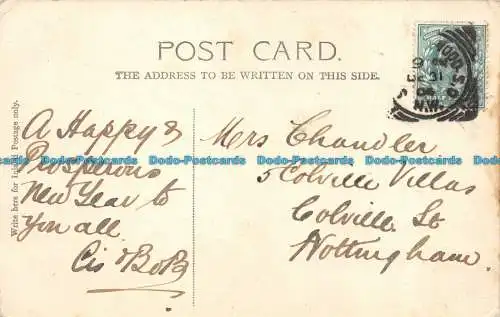 POST CARD.
THE ADDRESS TO BE WRITTEN ON THIS SIDE.
Write here for Inland Postage only.
A Happy &
Prosperous
New Year to
you all
Cis & Bob
Mrs Chandler
5 Colville Villas
Colville St
Nottingham
HALF
N.W.
Dodo-Postcards Dodo-Postcards Dodo-Postcards Dodo-Postcards